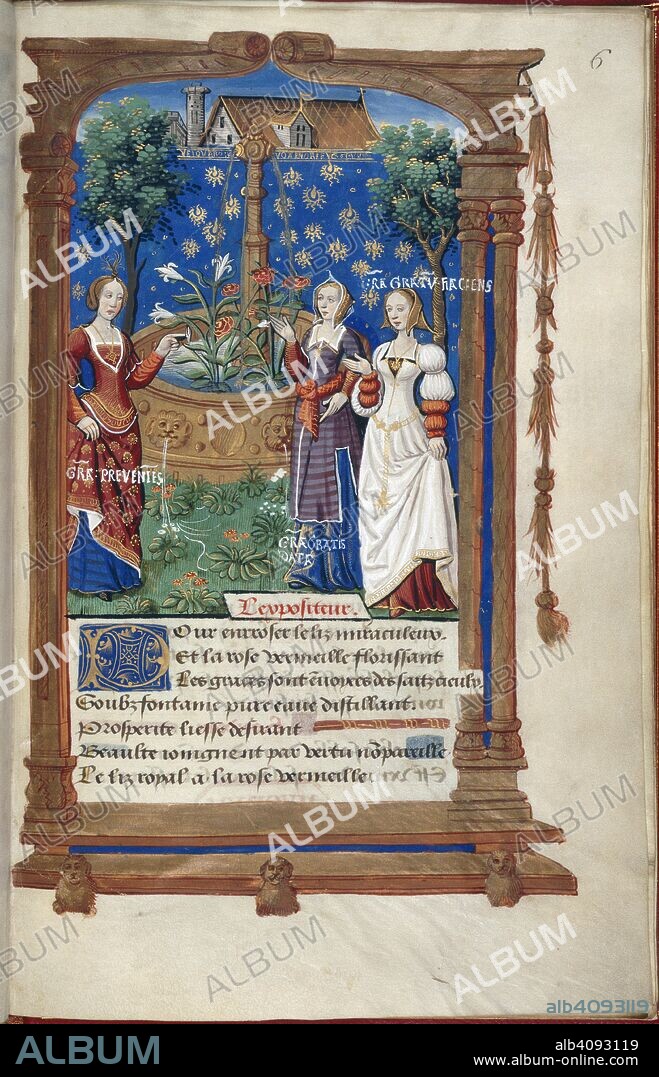 6
GRA: PREVENTES
GRATV: FACIENS
GRA GRATIS
DATE
Lexpositeur.
Pour enroser le liz miraculeux.
Et la rose vermeille florissant
Les graces sont envoyes des saitz cieulx
Soubz fontaine pure eaue distillant.
Prosperite liesse desirant
Beaulte joingnent par vertu nõpareille
Le liz royal a la rose vermeille
ALBUM
alb4093119
ALBUM
alb4093119
www.album-online.com